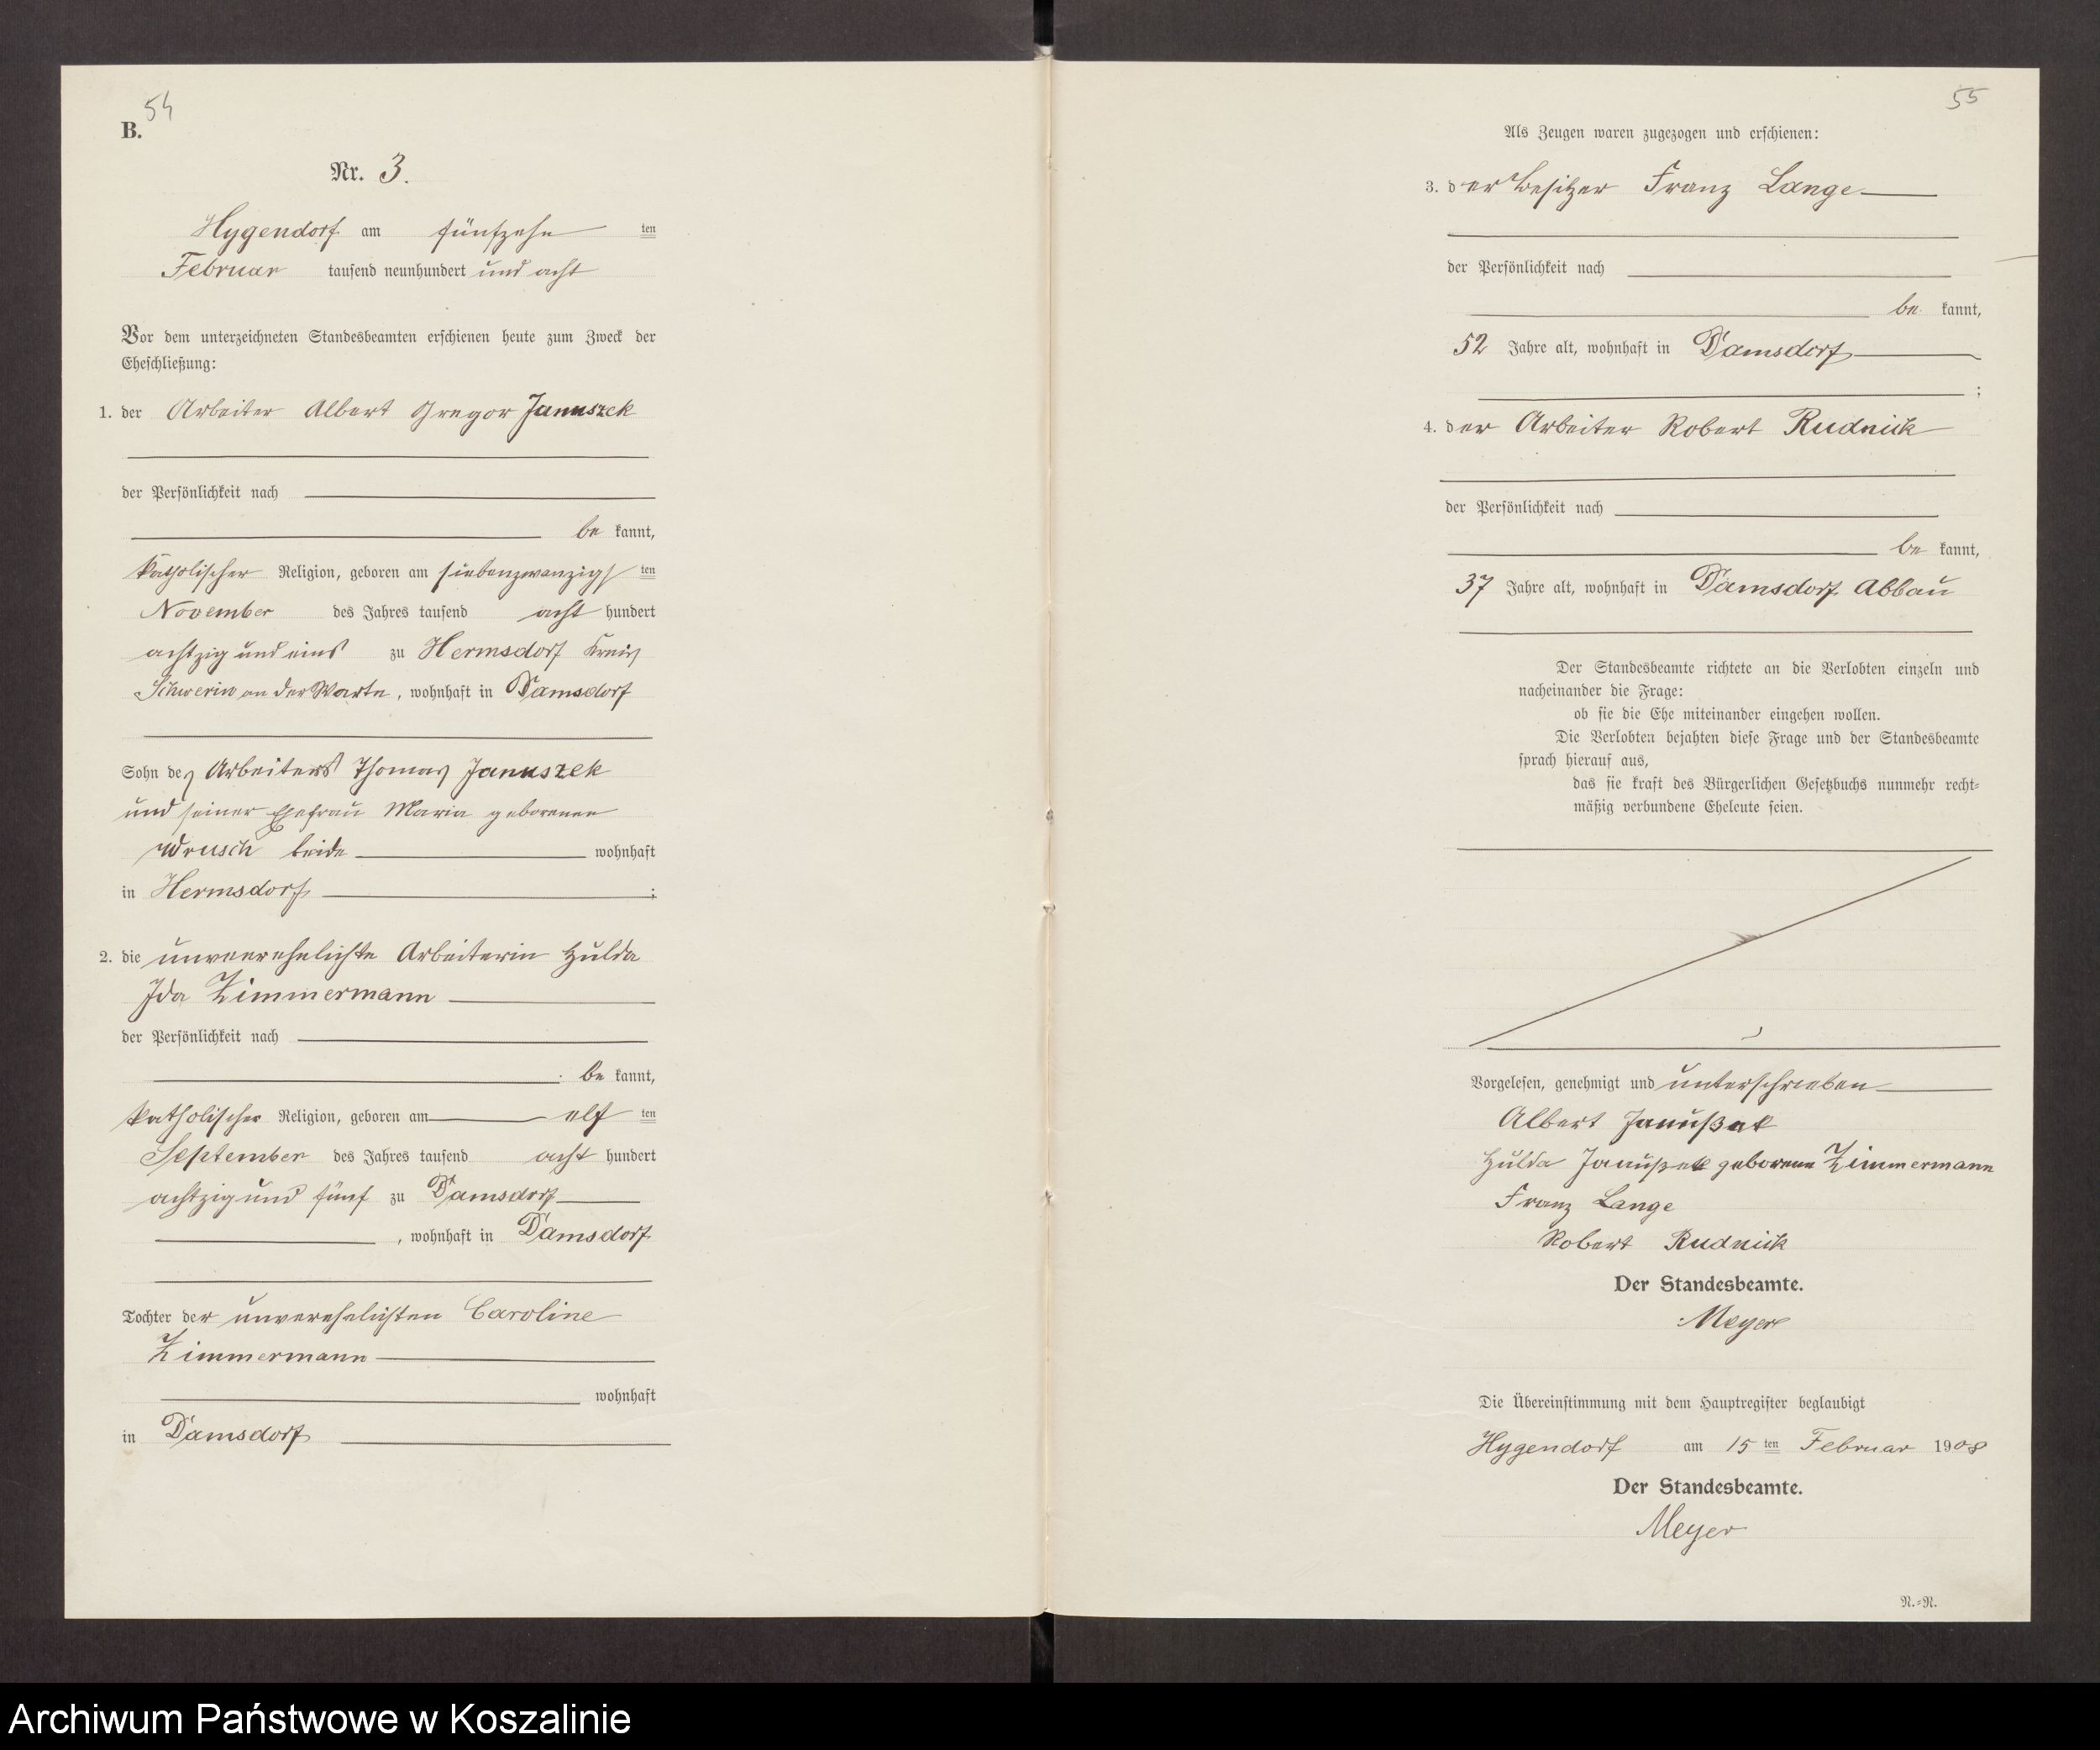 54
B.
Nr. 3.
Hygendorf am fünfzehn ten
Februar tausend neunhundert und acht
Vor dem unterzeichneten Standesbeamten erschienen heute zum Zweck der
Eheschließung:
1. der Arbeiter Albert Gregor Januszek
der Persönlichkeit nach
be kannt,
katholischer Religion, geboren am siebenzwanzigs ten
November des Jahres tausend acht hundert
achtzig und eins zu Hermsdorf Kreis
Schwerin an der Warte, wohnhaft in Damsdorf
Sohn des Arbeiters Thomas Januszek
und seiner Ehefrau Maria geborenen
Wrusch beide wohnhaft
in Hermsdorf ;
2. die unverehelichte Arbeiterin Hulda
Ida Zimmermann
der Persönlichkeit nach
be kannt,
katholischer Religion, geboren am elf ten
September des Jahres tausend acht hundert
achtzig und fünf zu Damsdorf
, wohnhaft in Damsdorf
Tochter der unverehelichten Caroline
Zimmermann
wohnhaft
in Damsdorf
55
Als Zeugen waren zugezogen und erschienen:
3. der Besitzer Franz Lange
der Persönlichkeit nach
be kannt,
52 Jahre alt, wohnhaft in Damsdorf
;
4. der Arbeiter Robert Rudnick
der Persönlichkeit nach
be kannt,
37 Jahre alt, wohnhaft in Damsdorf Abbau
Der Standesbeamte richtete an die Verlobten einzeln und
nacheinander die Frage:
ob sie die Ehe miteinander eingehen wollen.
Die Verlobten bejahten diese Frage und der Standesbeamte
sprach hierauf aus,
das sie kraft des Bürgerlichen Gesetzbuchs nunmehr recht-
mäßig verbundene Eheleute seien.
Vorgelesen, genehmigt und unterschrieben
Albert Janußek
Hulda Janußek geborene Zimmermann
Franz Lange
Robert Rudnick
Der Standesbeamte.
Meyer
Die Übereinstimmung mit dem Hauptregister beglaubigt
Hygendorf am 15 ten Februar 1908
Der Standesbeamte.
Meyer
N.=N.
Archiwum Państwowe w Koszalinie